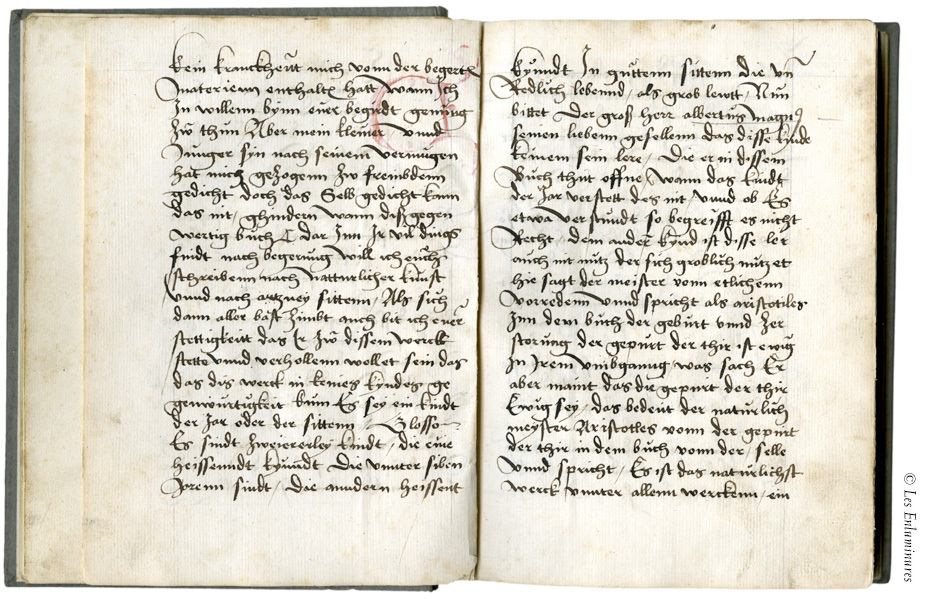 kein kranckheytt mich vonn der begertt
materienn enthaltt hatt wann Ich
In willenn bynn euer begirdt genung
zw thun Aber mein kleiner vnnd
Junger syn nach seinem vermugen
hat mich gezogenn zw frembdenn
gedicht doch das Selb gedicht kann
das nit ghindern wann diß gegen
wertig buch dar Inn Ir vil dings
findt nach begerung will ich euch
schreibenn nach natturlicher kunst
vnnd nach artzney sittenn / Als sich
dann aller bast zimbt auch bit ich euer
stettigkeitt das Ir zw dissem werck
stette vnnd verhollenn wellet sein das
das dis werck in keines kyndes ge
genwurtigkeit kum Es sey ein kindt
der Jar oder der sittenn / Glosso
Es sindt zweiererley kindt / die eine
heissenndt kynndt Die vnnter siben
Jarenn sindt / Die anndern heissent
kynndt In guttenn sittenn die vn
Redlich lebennd / als grob lewtt / Nun
bittet der groß herr albertus magnus
seinen liebenn gesellenn das disse kinde
keinem sein lere / Die er in dissem
Buch thut offne / wann das kindt
der Jar verstett des nit vnnd ob Es
etwa versthundt so begreifft es nicht
Recht / dem ander kynd ist disse ler
auch nit nutz der sich groblich nutzet
hie sagt der meister vonn etlichenn
vorredenn vnnd spricht als aristotiles
Inn dem buch der geburt vnnd zer
storung der gepurt der thir ist ewig
In Irem vmbganng / was sach Er
aber maint das die gepurt der thir
Ewig sey / das bedeut der naturlich
meyster Aristotles vonn der gepurt
der thir in dem buch vonn der / selle
Vnnd spricht / Es ist das naturlichst
werck vnnter allenn werckenn / ein
© Les Enluminures